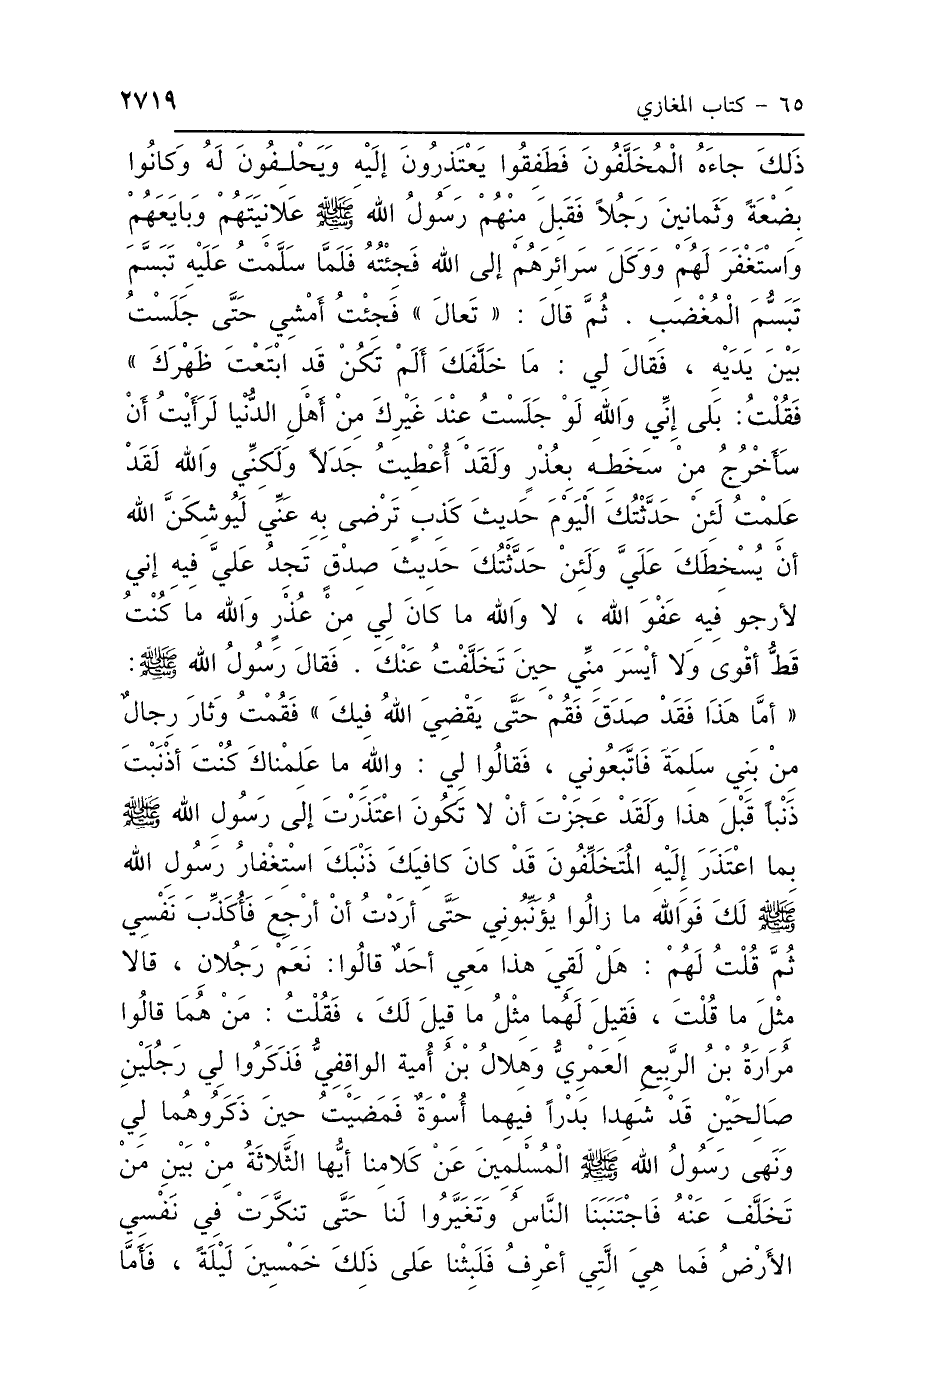 ٦٥ - كتاب المغازي ٢٧١٩
ذَلكَ جاءَهُ الْمُخَلَّفُونَ فَطَفقُوا يَعْتَذرُونَ إلَيْه وَيَحْلـفُونَ لَهُ وَكانُوا
بِضْعَةً وَثَمانينَ رَجُلاً فَقَبلَ منْهُمْ رَسُولُ الله ﷺ عَلانيَتَهُمْ وَبايَعَهُمْ
وَاسْتَغْفَرَ لَهُمْ وَوَكَلَ سَرائرَهُم إلى الله فَجئْتُهُ فَلَمَّا سَلَّمتُ عَلَيْه تَبَسَّمَ
تَبَسُّمَ الْمُغْضَب . ثُمَّ قالَ : « تَعالَ » فَجِئْتُ أَمْشي حَتَّى جَلَستُ
بَيْنَ يَدَيْه ، فَقالَ لي : مَا خَلَّفَكَ أَلَمْ تَكُنْ قَد ابْتَعْتَ ظَهْرَكَ »
فَقُلْتُ: بَلى إنِّي وَالله لَوْ جَلَستُ عنْدَ غَيْركَ منْ أهْل الدُّنْيا لَرَأيْتُ أنْ
سَأخْرُجُ منْ سَخَطـه بعُذْرٍ وَلَقَدْ أُعْطيتُ جَدَلاً وَلَكنِّي وَالله لَقَدْ
عَلمْتُ لَئنْ حَدَّثْتُكَ الْيَوْمَ حَديثَ كَذبٍ تَرْضى به عَنِّي لَيُوشكَنَّ الله
أنْ يُسْخطَكَ عَلَيَّ وَلَئنْ حَدَّثْتُكَ حَديثَ صدْق تَجدُ عَليَّ فيه إني
لأرجو فيه عَفْوَ الله ، لا وَالله ما كانَ لي منْ عُذْرٍ وَالله ما كُنْتُ
قَطُّ أقْوى وَلا أيْسَرَ منِّي حينَ تَخَلَّفْتُ عَنْكَ . فَقالَ رَسُولُ الله ﷺ:
« أمَّا هَذَا فَقَدْ صَدَقَ فَقُمْ حَتَّى يَقْضيَ اللهُ فيكَ » فَقُمْتُ وَثارَ رجالٌ
منْ بَني سَلمَةَ فَاتَّبَعُوني ، فَقالُوا لي : والله ما عَلمْناكَ كُنْتَ أذْنَبْتَ
ذَنْباً قَبْلَ هذا ولَقَدْ عَجَزْتَ أنْ لا تَكُونَ اعْتَذَرْتَ إلى رَسُول الله ﷺ
بما اعْتَذَرَ إلَيْه الْمُتَخَلِّفُونَ قَدْ كانَ كافيَكَ ذَنْبَكَ اسْتغْفارُ رَسُول الله
ﷺ لَكَ فَوَالله ما زالُوا يُؤَنِّبُوني حَتَّى أرَدْتُ أنْ أرْجعَ فَأُكَذِّبَ نَفْسي
ثُمَّ قُلْتُ لَهُمْ : هَلْ لَقيَ هذا مَعي أحَدٌ قالُوا: نَعَمْ رَجُلان ، قالا
مثْلَ ما قُلْتَ ، فَقيلَ لَهُما مثْلُ ما قيلَ لَكَ ، فَقُلْتُ : مَنْ هُمَا قالُوا
مُرارَةُ بْنُ الرَّبيع العَمْريُّ وَهلالُ بْنُ أُمية الواقفيُّ فَذَكَرُوا لي رَجُلَيْن
صَالحَيْن قَدْ شَهدا بَدْراً فيهما أُسْوَةٌ فَمَضَيْتُ حينَ ذَكَرُوهُما لي
وَنَهى رَسُولُ الله ﷺ الْمُسْلمينَ عَنْ كَلامنا أيُّها الثَّلاثَةُ منْ بَيْن مَنْ
تَخَلَّفَ عَنْهُ فَاجْتَنَبَنَا النَّاسُ وَتَغَيَّرُوا لَنا حَتَّى تنكَّرَتْ في نَفْسي
الأَرْضُ فَما هيَ الَّتي أعْرفُ فَلَبثْنا عَلى ذَلكَ خَمْسينَ لَيْلَةً ، فَأَمَّا